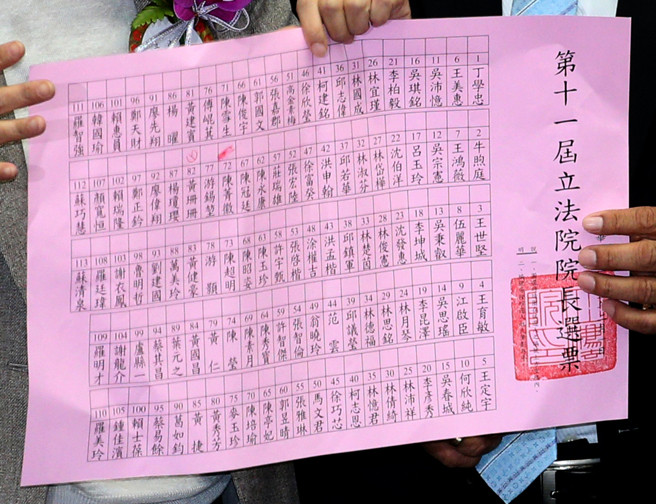 第十一屆立法院院長選票
1 丁學忠
2 牛煦庭
3 王世堅
4 王育敏
5 王定宇
6 王美惠
7 王鴻薇
8 伍麗華
9 江啟臣
10 何欣純
11 吳沛憶
12 吳宗憲
13 吳秉叡
14 吳思瑤
15 吳春城
16 吳琪銘
17 呂玉玲
18 李坤城
19 李昆澤
20 李彥秀
21 李柏毅
22 沈伯洋
23 沈發惠
24 林月琴
25 林沛祥
26 林宜瑾
27 林岱樺
28 林俊憲
29 林思銘
30 林倩綺
31 林國成
32 林淑芬
33 林楚茵
34 林德福
35 林憶君
36 邱志偉
37 邱若華
38 邱鎮軍
39 邱議瑩
40 柯志恩
41 柯建銘
42 洪申翰
43 洪孟楷
44 范雲
45 徐巧芯
46 徐欣瑩
47 徐富癸
48 涂權吉
49 翁曉玲
50 馬文君
51 高金素梅
52 張宏陸
53 張啓楷
54 張智倫
55 張雅琳
56 張嘉郡
57 莊瑞雄
58 許宇甄
59 許智傑
60 郭昱晴
61 郭國文
62 陳永康
63 陳玉珍
64 陳秀寳
65 陳亭妃
66 陳俊宇
67 陳冠廷
68 陳昭姿
69 陳素月
70 陳培瑜
71 陳雪生
72 陳菁徽
73 陳超明
74 陳瑩
75 麥玉珍
76 傅崐萁
77 游錫堃
78 游顥
79 黃仁
80 黃秀芳
81 黃建賓
82 黃珊珊
83 黃健豪
84 黃國昌
85 黃捷
86 楊曜
87 楊瓊瓔
88 萬美玲
89 葉元之
90 葛如鈞
91 廖先翔
92 廖偉翔
93 劉建國
94 蔡其昌
95 蔡易餘
96 鄭天財
97 鄭正鈐
98 魯明哲
99 盧縣一
100 賴士葆
101 賴惠員
102 賴瑞隆
103 謝衣鳯
104 謝龍介
105 鍾佳濱
106 韓國瑜
107 顏寬恒
108 羅廷瑋
109 羅明才
110 羅美玲
111 羅智強
112 蘇巧慧
113 蘇清泉